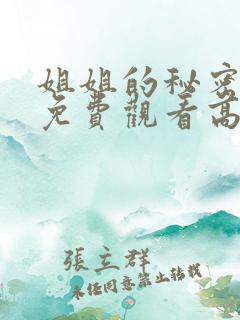 姐姐的秘密
免費觀看高
張立群
未経同意禁止转載